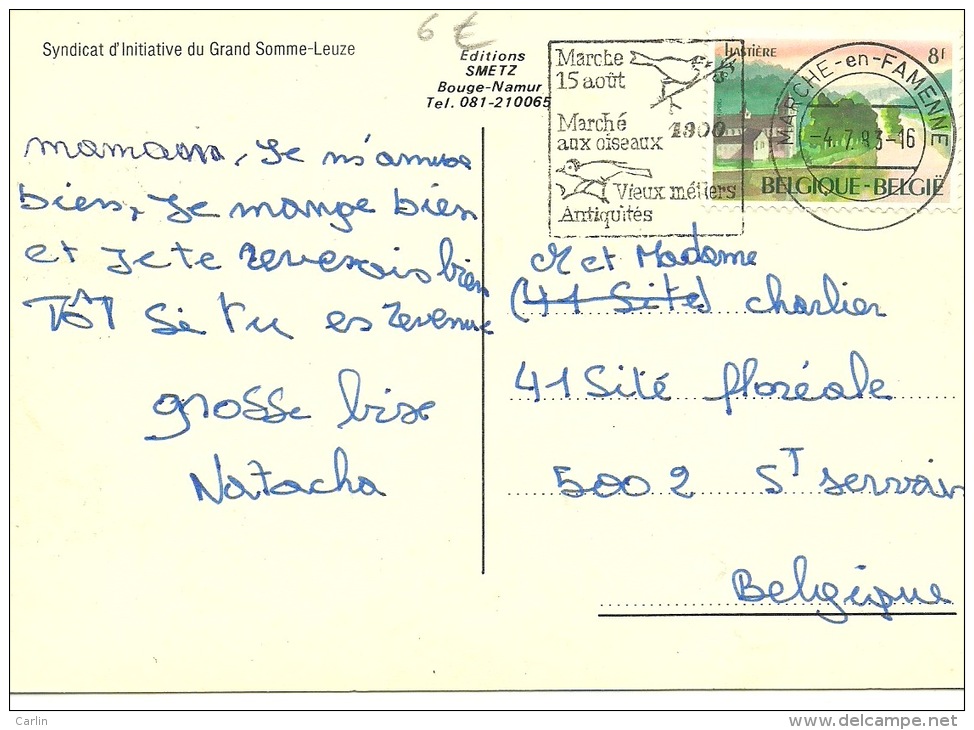 6 €
Syndicat d'Initiative du Grand Somme-Leuze
Editions
SMETZ
Bouge-Namur
Tel. 081-210065
Marche
15 août
Marché
aux oiseaux
1300
Vieux métiers
Antiquités
HASTIÈRE
8f
BELGIQUE-BELGIË
MARCHE-en-FAMENNE
-4.7.83-16
maman, Je m'amuse
bien, Je mange bien
et Je te reverais bien
TÔT si tu es revenue
grosse bise
Natacha
Mr et Madame
(41 Site) charlier
41 Sité floréale
5002 St servais
Belgique
Carlin
www.delcampe.net